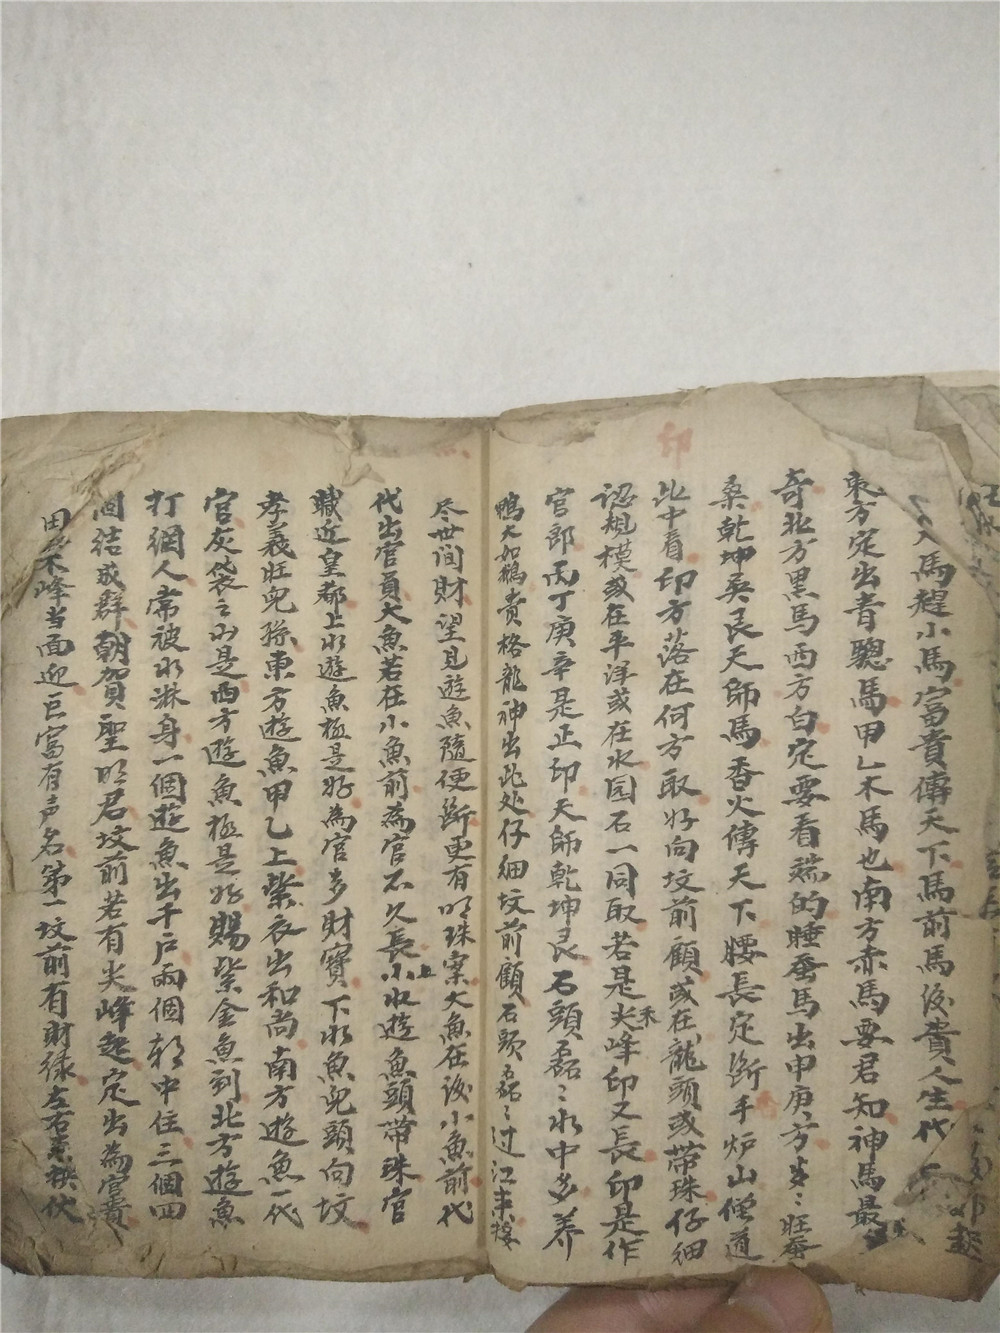 馬趕小馬富貴傳天下馬前馬後貴人生代
東方定出青驄馬甲乙木馬也南方赤馬要君知神馬最
奇北方黑馬西方白定要看端的睡蚕馬出申庚方岁〻旺蚕
桑乾坤巽艮天師馬香火傳天下腰長定斷手炉山僧道
印
此中看印方落在何方取好向坟前顧或在龍頭或帶珠仔細
認規模或在平洋或在水囯石一同取若是尖峰印又長印是作
官郎丙丁庚辛是正印天師乾坤艮石頭磊〻水中多养
鴨大如鵝貴格龍神出此处仔細坟前顧石頭磊〻过江
尽世间財望見遊魚隨便斷更有明珠案大魚在後小魚前代
代出官員大魚若在小魚前為官不久長上小水遊魚頭帶珠官
職近皇都上水遊魚極是好為官多財寶下水魚児頭向坟
孝義旺児孫東方遊魚甲乙上紫衣出和尚南方遊魚一代
官灰袋之水是西方遊魚極是好賜紫金魚到北方遊魚
打網人常被水淋身一個遊魚出千户兩個郡中住三個四
個結成群朝賀聖明君坟前若有尖峰起定出為官貴
田 木峰当面迎巨富有声名第一坟前有財禄左右